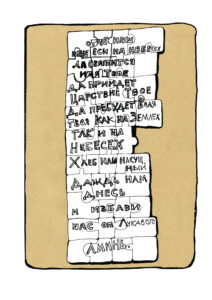 ОТЧЕ НАШ
ИЖЕ ЕСИ НА НЕБЕСЕХ
ДА СВЯТИТСЯ
ИМЯ ТВОЕ
ДА ПРИИДЕТ
ЦАРСТВИЕ ТВОЕ
ДА ПРЕБУДЕТ ВОЛЯ
ТВОЯ КАК НА ЗЕМЛЕХ
ТАК И НА
НЕБЕСЕХ
ХЛЕБ НАШ НАСУЩ
НЫЙ
ДАЖДЬ НАМ
ДНЕСЬ
И ИЗБАВИ
НАС ОТ ЛУКАВОГО
АМИНЬ.